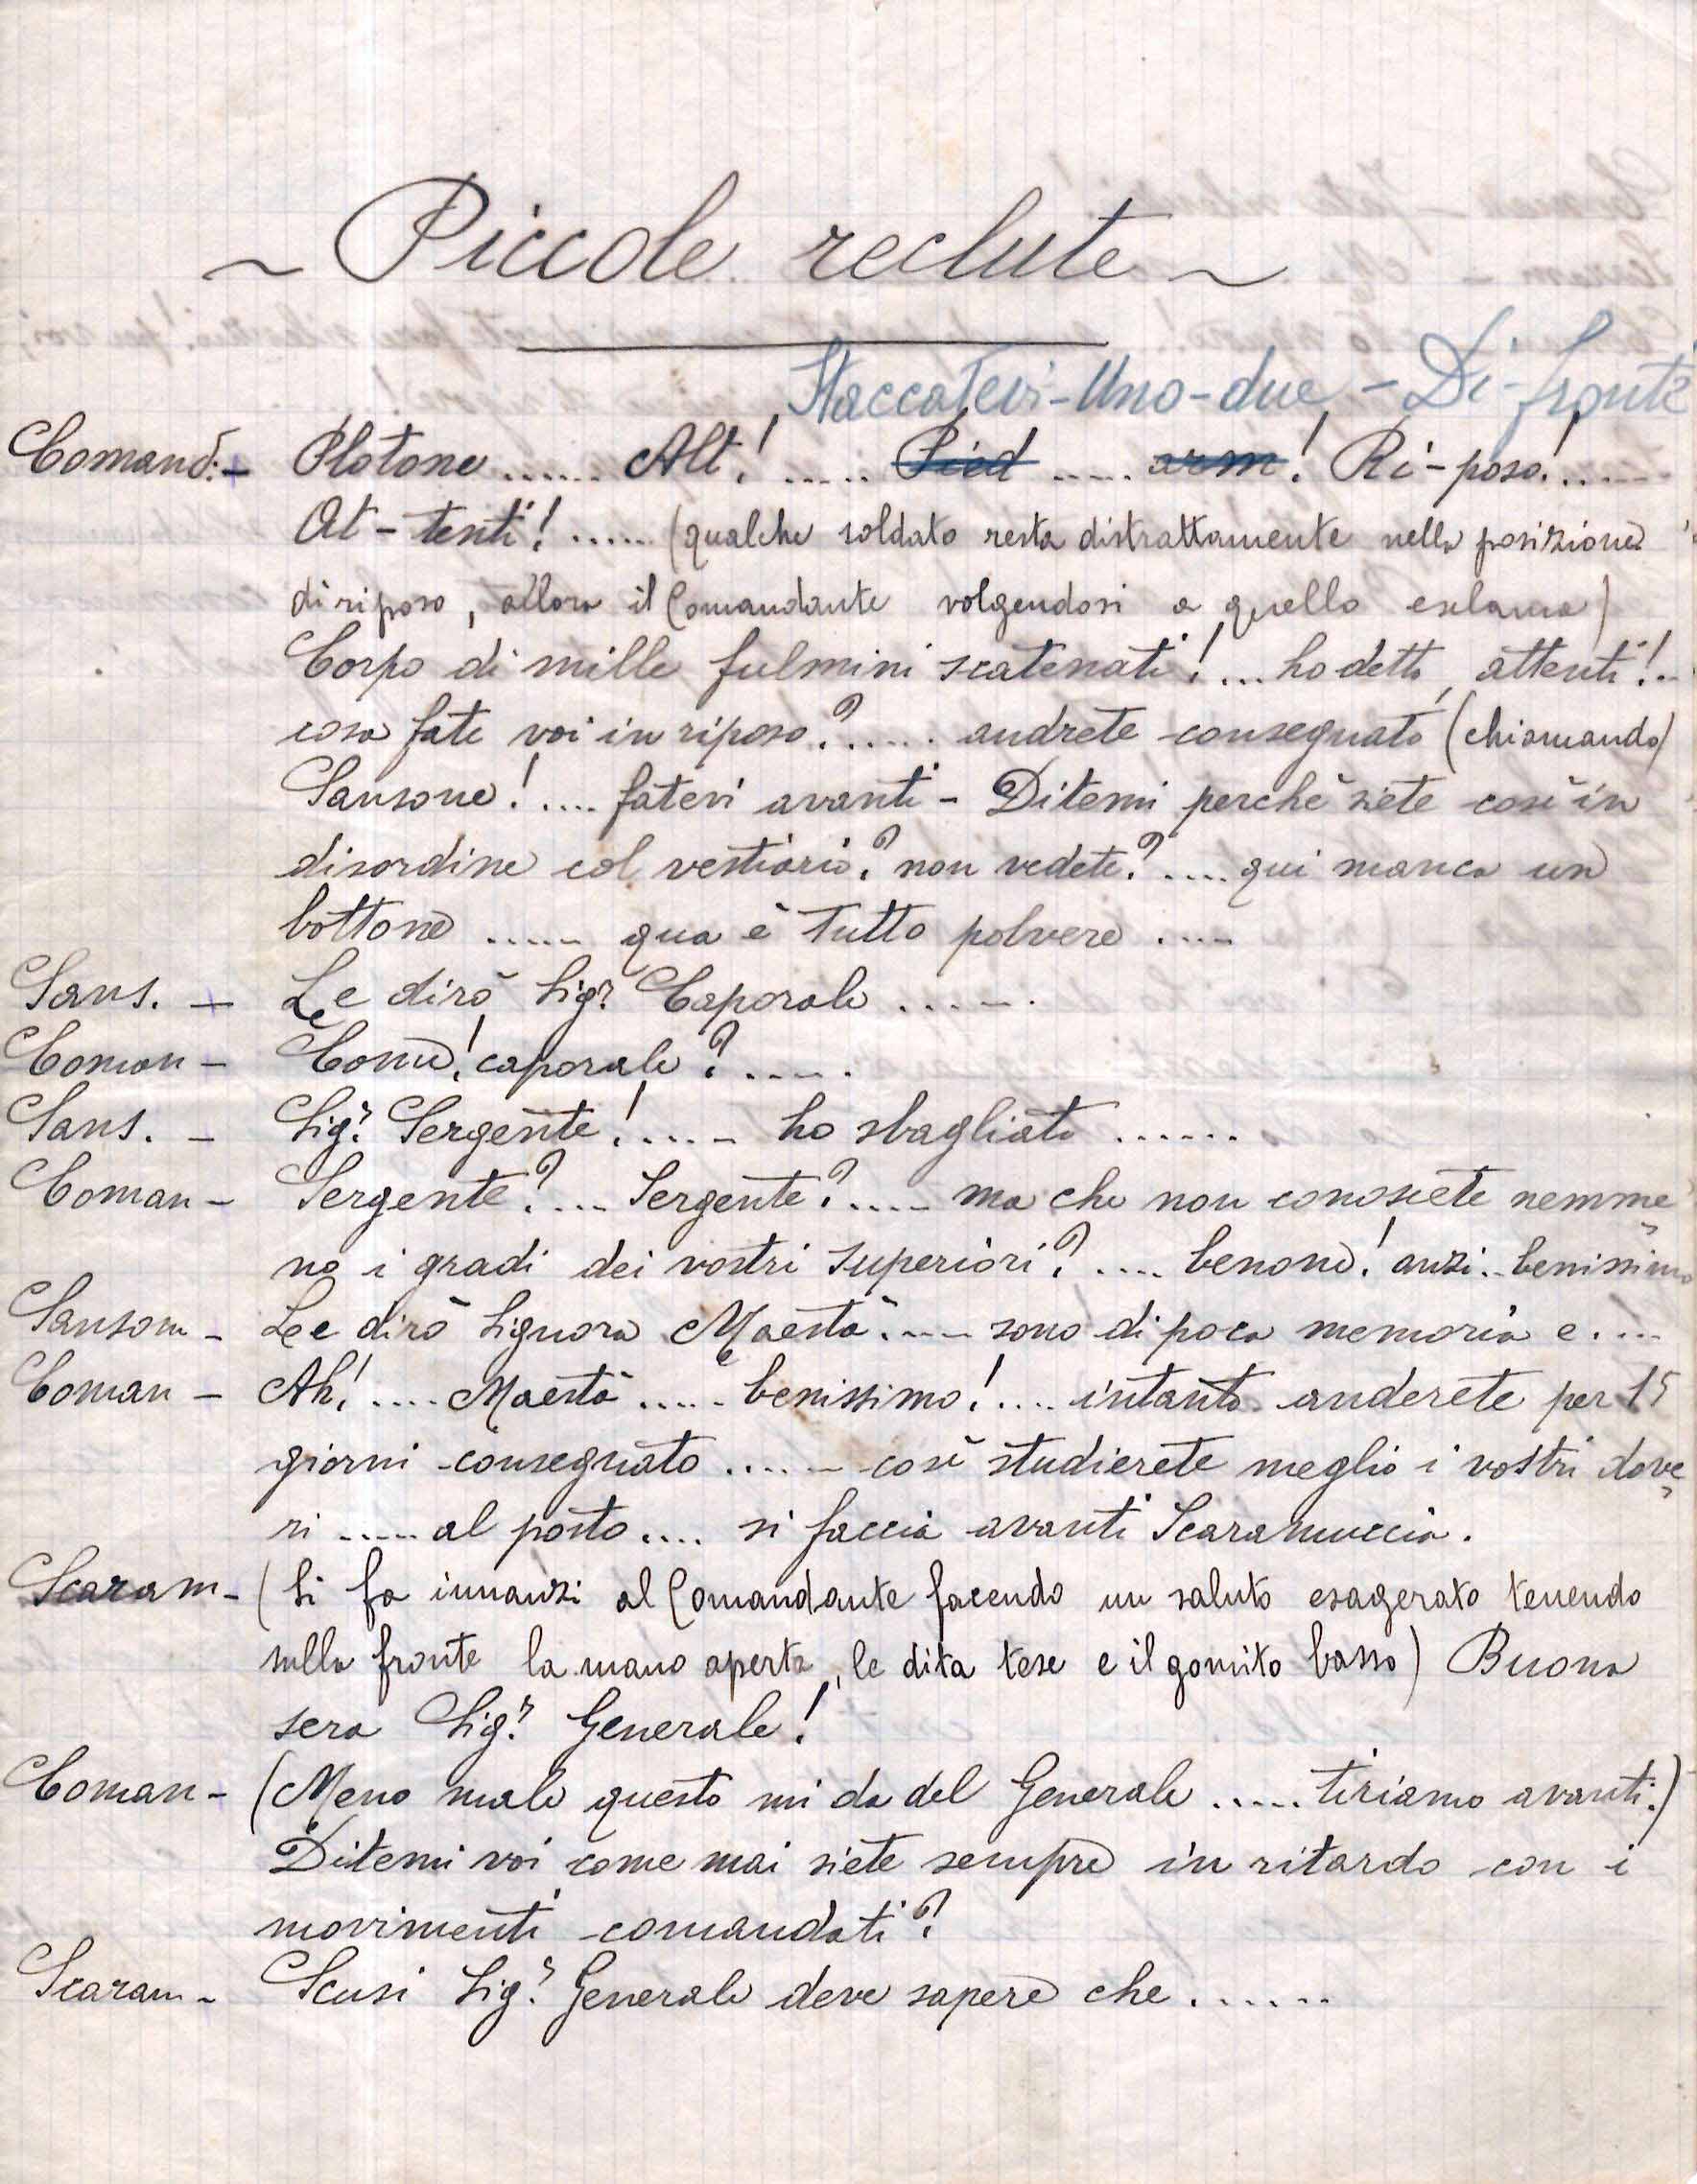 ~ Piccole reclute ~
Staccatevi-Uno-due - Di-fronte
Comand:- Plotone ...... Alt! ..... Pied ..... arm! Ri-poso! .....
At-tenti! ...... (qualche soldato resta distrattamente nella posizione
di riposo, allora il Comandante volgendosi a quello esclama)
Corpo di mille fulmini scatenati! ... ho detto attenti! ..
cosa fate voi in riposo? ...... andrete consegnato (chiamando)
Sansone! .... fatevi avanti - Ditemi perchè siete così in
disordine col vestiario? non vedete? .... qui manca un
bottone ..... qua è tutto polvere ....
Sans. - Le dirò Sigr Caporale ......
Coman - Come! caporale? .....
Sans. - Sigr Sergente! ..... ho sbagliato ......
Coman - Sergente? ... Sergente? .... ma che non conoscete nemme
no i gradi dei vostri superiori? .... benone! anzi .. benissimo
Sansom - Le dirò Signora Maestà ..... sono di poca memoria e ....
Coman - Ah! .... Maestà ..... benissimo! .... intanto anderete per 15
giorni consegnato ...... così studierete meglio i vostri dove
ri ..... al posto .... si faccia avanti Scaramuccia.
Scaram - (Si fa innanzi al Comandante facendo un saluto esagerato tenendo
sulla fronte la mano aperta, le dita tese e il gomito basso) Buona
sera Sigr Generale!
Coman - (Meno male questo mi da del Generale ..... tiriamo avanti.)
Ditemi voi come mai siete sempre in ritardo con i
movimenti comandati?
Scaram - Scusi Sigr Generale deve sapere che .......